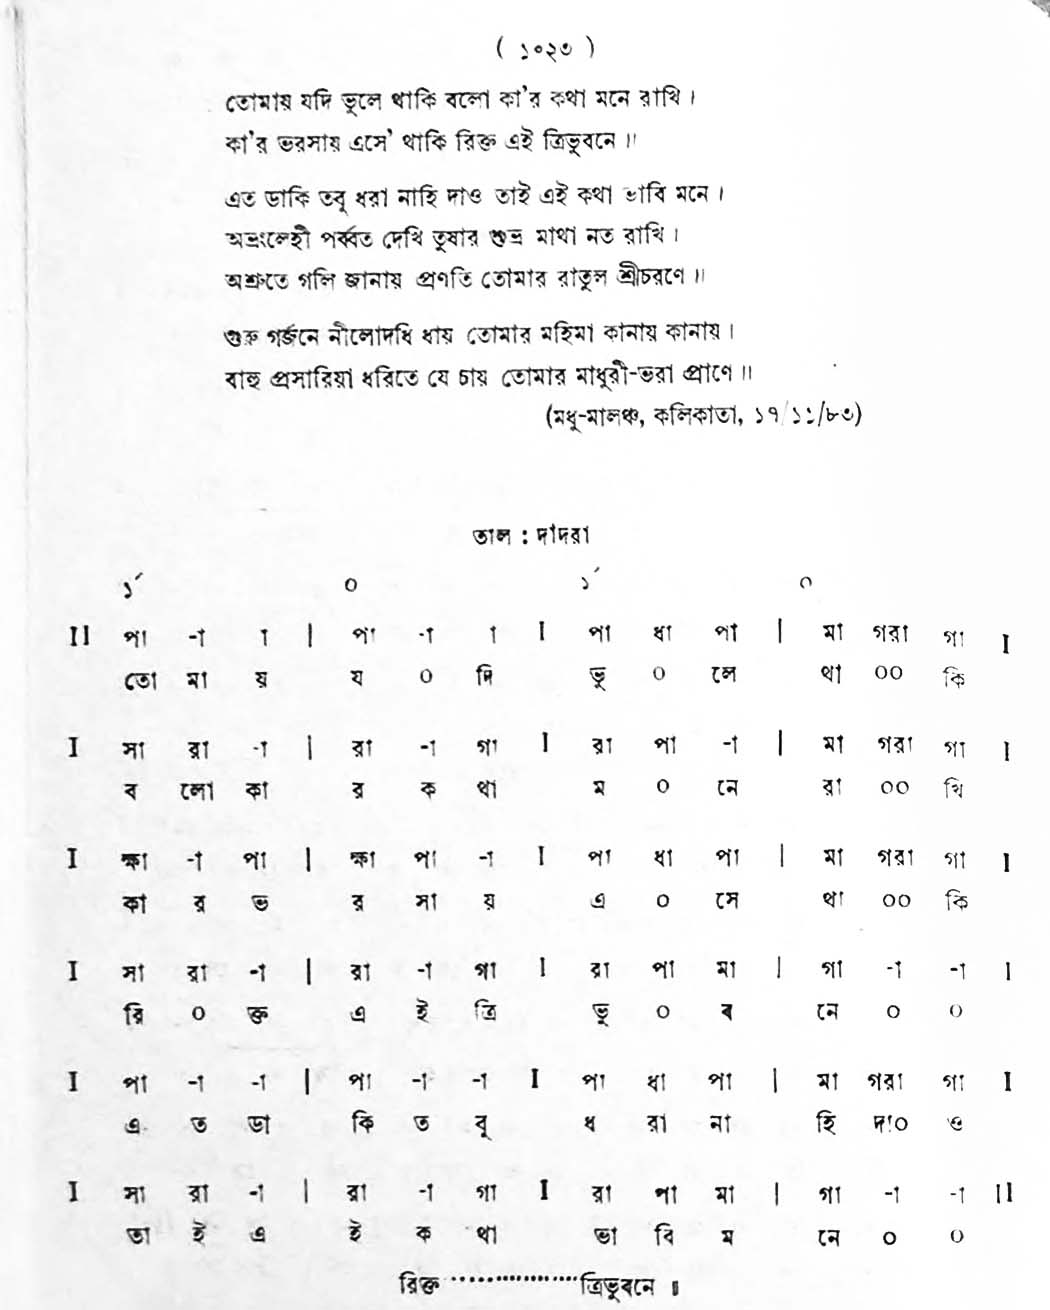 ( ১০২৩ )
তোমায় যদি ভুলে থাকি বলো কা'র কথা মনে রাখি ।
কা'র ভরসায় এসে' থাকি রিক্ত এই ত্রিভুবনে ॥
এত ডাকি তবু ধরা নাহি দাও তাই এই কথা ভাবি মনে ।
অভ্রংলেহী পর্ব্বত দেখি তুষার শুভ্র মাথা নত রাখি ।
অশ্রুতে গলি জানায় প্রণতি তোমার রাতুল শ্রীচরণে ॥
গুরু গর্জনে নীলোদধি ধায় তোমার মহিমা কানায় কানায় ।
বাহু প্রসারিয়া ধরিতে যে চায় তোমার মাধুরী-ভরা প্রাণে ॥
(মধু-মালঞ্চ, কলিকাতা, ১৭/১১/৮৩)
তাল : দাদরা
১´ ০ ১´ ০
II পা -া া | পা -া া I পা ধা পা | মা গরা গা I
তো মা য় য ০ দি ভু ০ লে থা ০০ কি
I সা রা -া | রা -া গা I রা পা -া | মা গরা গা I
ব লো কা র ক থা ম ০ নে রা ০০ খি
I ক্ষা -া পা | ক্ষা পা -া I পা ধা পা | মা গরা গা I
কা র ভ র সা য় এ ০ সে থা ০০ কি
I সা রা -া | রা -া গা I রা পা মা | গা -া -া I
রি ০ ক্ত এ ই ত্রি ভু ০ ব নে ০ ০
I পা -া -া | পা -া -া I পা ধা পা | মা গরা গা I
এ ত ডা কি ত বু ধ রা না হি দা০ ও
I সা রা -া | রা -া গা I রা পা মা | গা -া -া II
তা ই এ ই ক থা ভা বি ম নে ০ ০
রিক্ত ················ত্রিভুবনে ॥